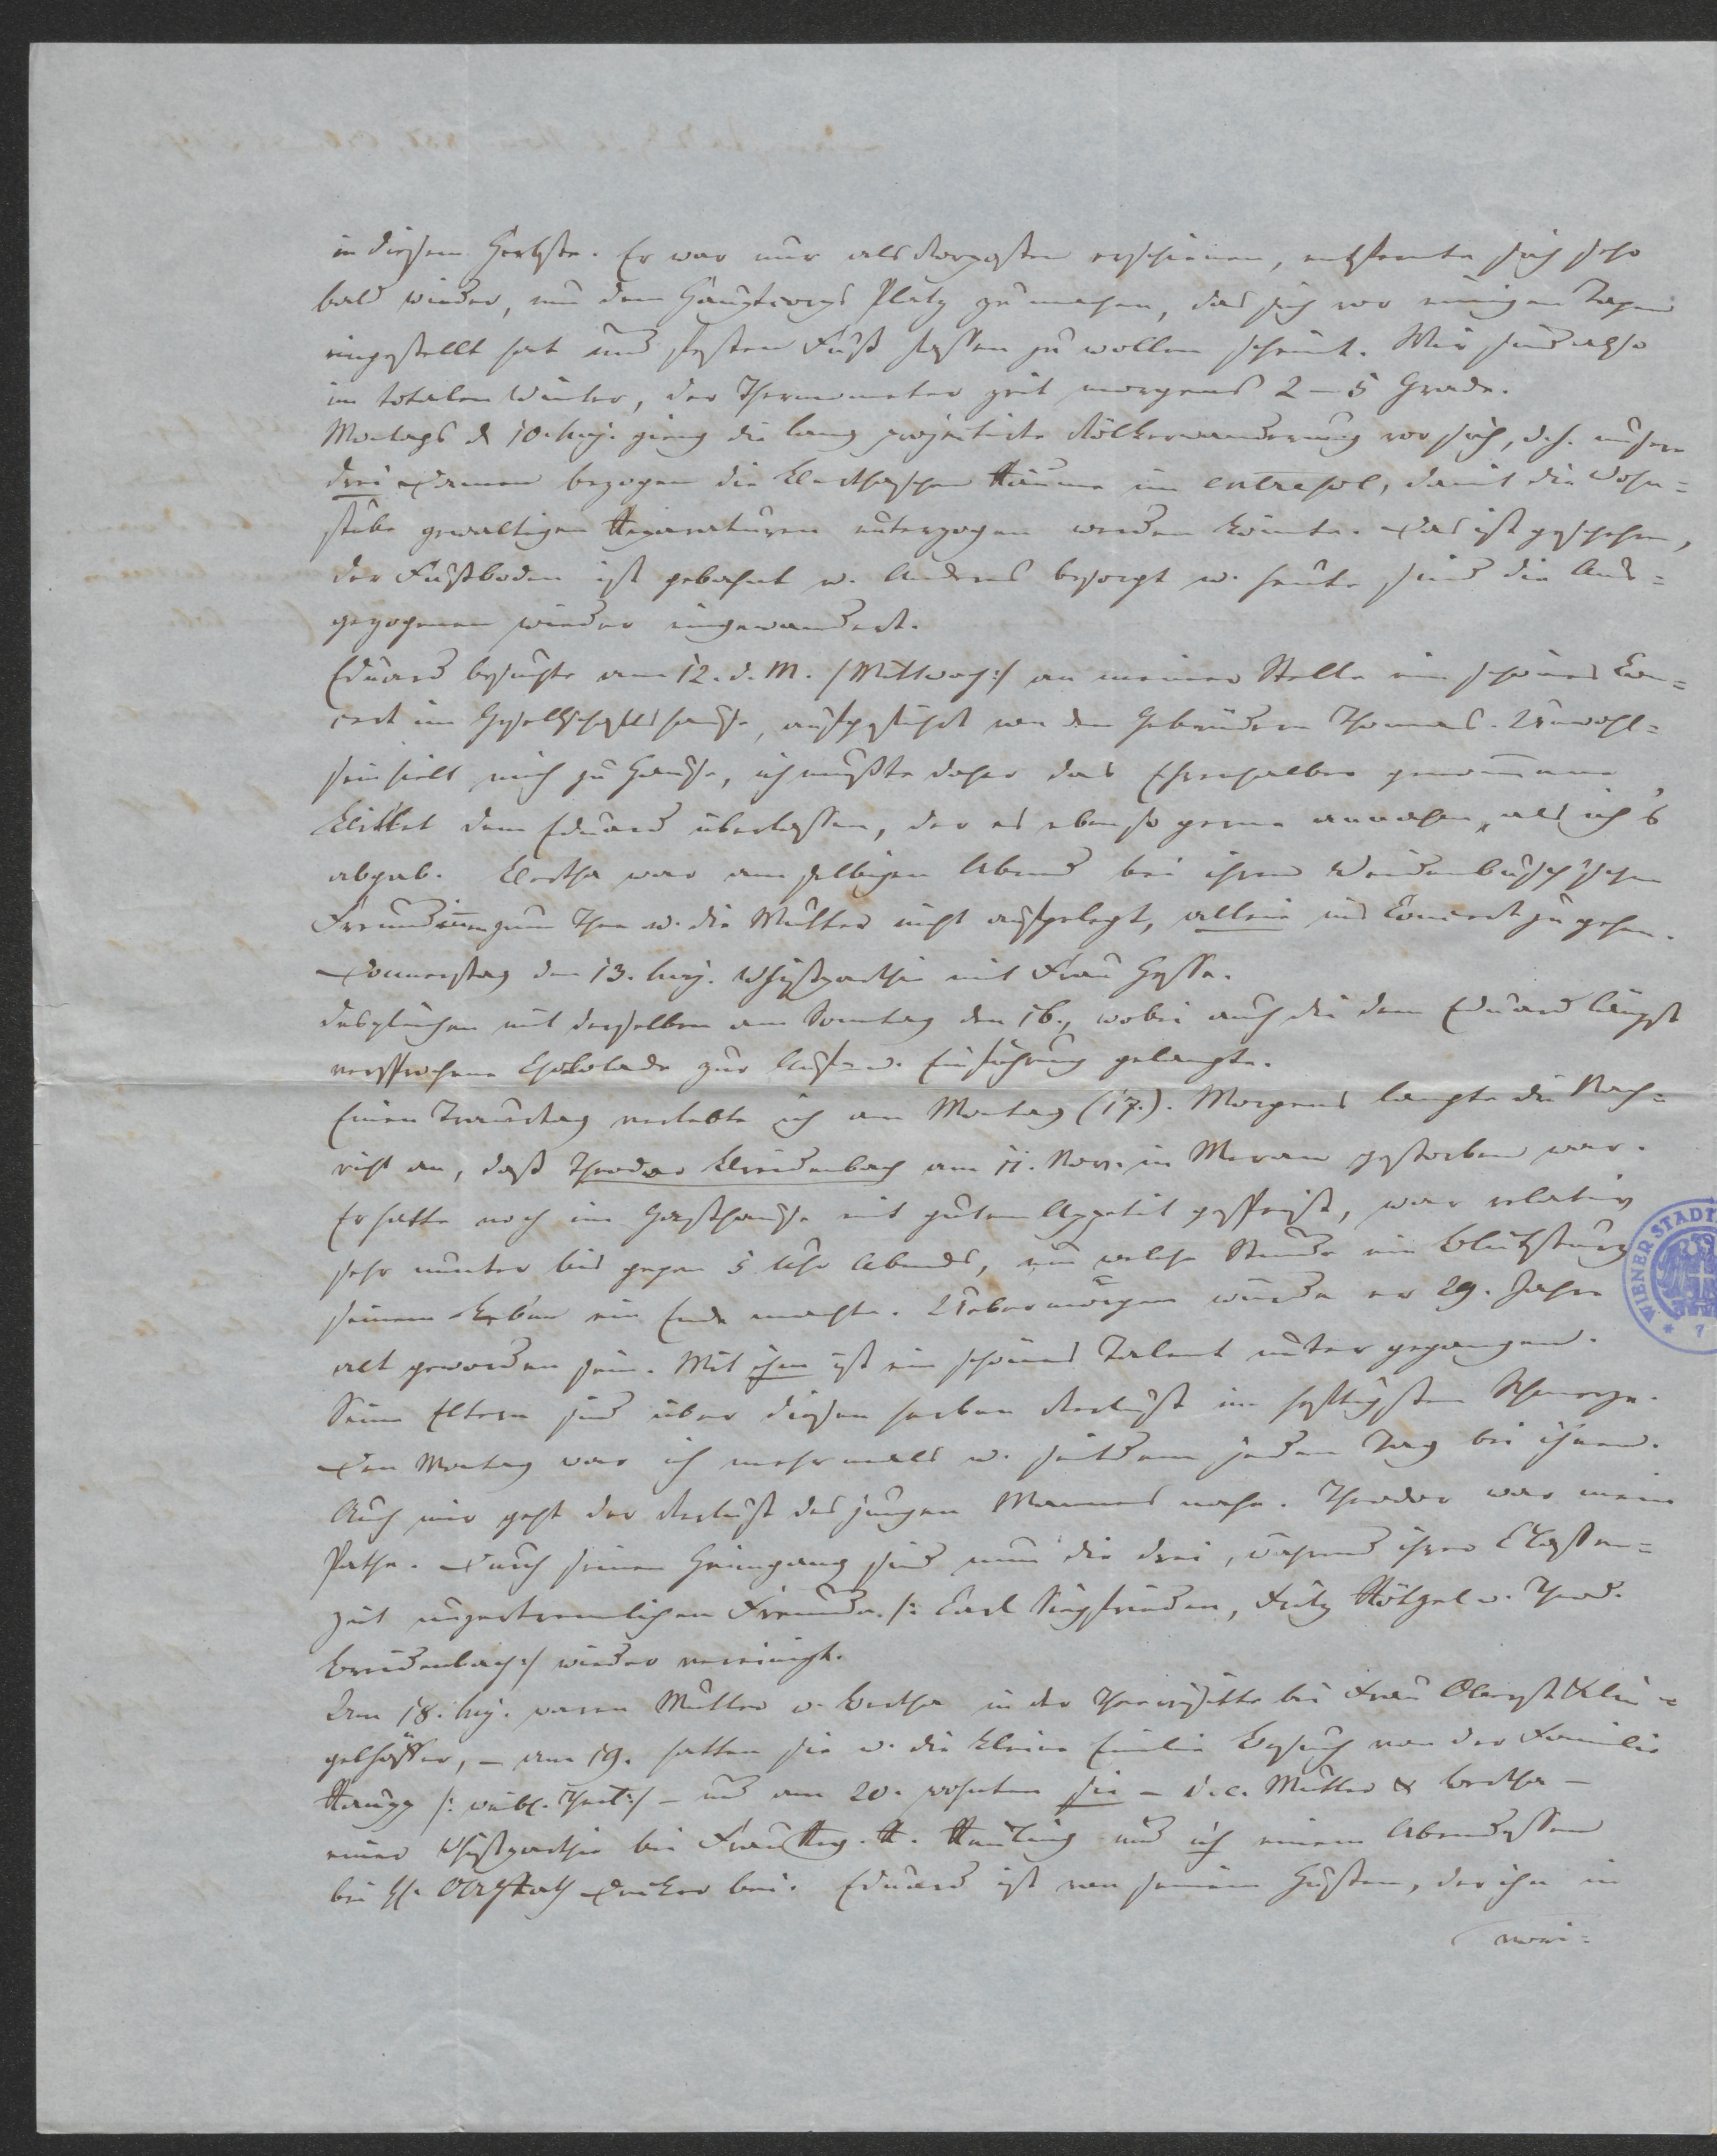 in diesem Herbste. Er war nur als Vorposten erschienen, entfernte sich sehr
bald wieder, um dem Hauptcorps Platz zu machen, das sich vor einigen Tagen
eingestellt hat und festen Fuß fassen zu wollen scheint. Wir sind also
im totalen Winter, der Thermometer zeit morgens 2–5 Grade.
Montags d 10. huj. gieng die lang projectirte Völkerwanderung vor sich, d.h. unsere
drei Damen bezogen die Bertha'schen Räume im entresol, damit die Wohn=
stube gewaltigen Reparaturen unterzogen werden konnte. Das ist geschehen,
der Fußboden ist gebohnt u. Anderes besorgt u. heute sind die Aus=
gezogenen wieder eingewandert.
Eduard besuchte am 12. d. M. /:Mittwoch:/ an meiner Stelle ein schönes Con=
cert im Gesellschaftshause, aufgeführt von den Gebrüdern Thomas. Unwohl=
sein hielt mich zu Hause, ich mußte daher das Ehrenhalber genommene
Billet dem Eduard überlassen, der es ebenso gerne annahm, als ich's
abgab. Bertha war am selbigen Abend bei ihren Weidenbusch'schen
Freundinnen zum Thee u. die Mutter nicht aufgelegt, allein ins Concert zu gehen.
Donnerstag den 13. huj. Whistparthie mit Frau Hesse.
desgleichen mit derselben am Sonntag den 16., wobei auch die dem Eduard längst
versprochene Chokolade zur Auf= u. Einführung gelangte.
Einen Trauertag verlebte ich am Montag (17.). Morgens langte die Nach=
richt an, daß Theodor Breidenbach am 11. Nov. in Meran gestorben war.
Er hatte noch im Gasthause mit gutem Appetit gespeist, war relativ
sehr munter bis gegen 5 Uhr Abends, um welche Stunde ein Blutsturz
seinem Leben ein Ende machte. Uebermorgen würde er 29. Jahre
alt geworden sein. Mit ihm ist ein schönes Talent unter gegangen.
Seine Eltern sind über diesen herben Verlust im heftigsten Schmerze.
Den Montag war ich mehrmals u. seitdem jeden Tag bei ihnen.
Auch mir geht der Verlust des jungen Mannes nahe. Theodor war mein
Pathe. Durch seinen Heimgang sind nun die drei, während ihrer Classen=
zeit unzertrennlichen Freunde /: Carl Siegfrieden, Fritz Rötzel u. Theod.
Breidenbach:/ wieder vereinigt.
Am 18. huj. waren Mutter u. Bertha in der Theevisitte bei Frau Oberst Klin=
gelhöffer, – am 19. hatten sie u. die kleine Emilie Besuch von der Familie
Raupp /: weibl. Theil:/ – und am 20. wohnten sie – i.e. Mutter & Bertha –
einer Whistparthie bei Frau Reg. R. Reuling und ich einem Abendessen
bei H. Decker bei. Eduard ist von seinem Husten, der ihn in
vori=
WIENER STADT